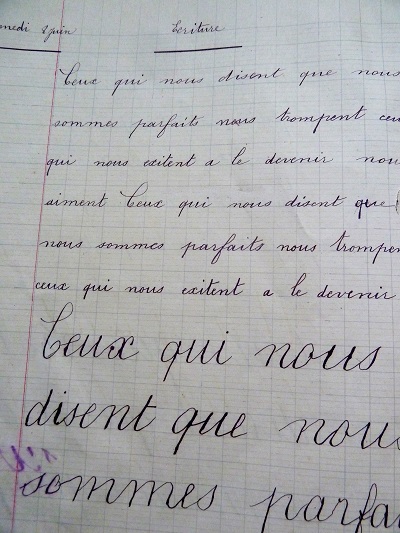 medi 8 juin Ecriture
Ceux qui nous disent que nous
sommes parfaits nous trompent ceu
qui nous exitent a le devenir nou
aiment Ceux qui nous disent que
nous sommes parfaits nous trompen
ceux qui nous exitent a le devenir
Ceux qui nous
disent que nous
sommes parfai